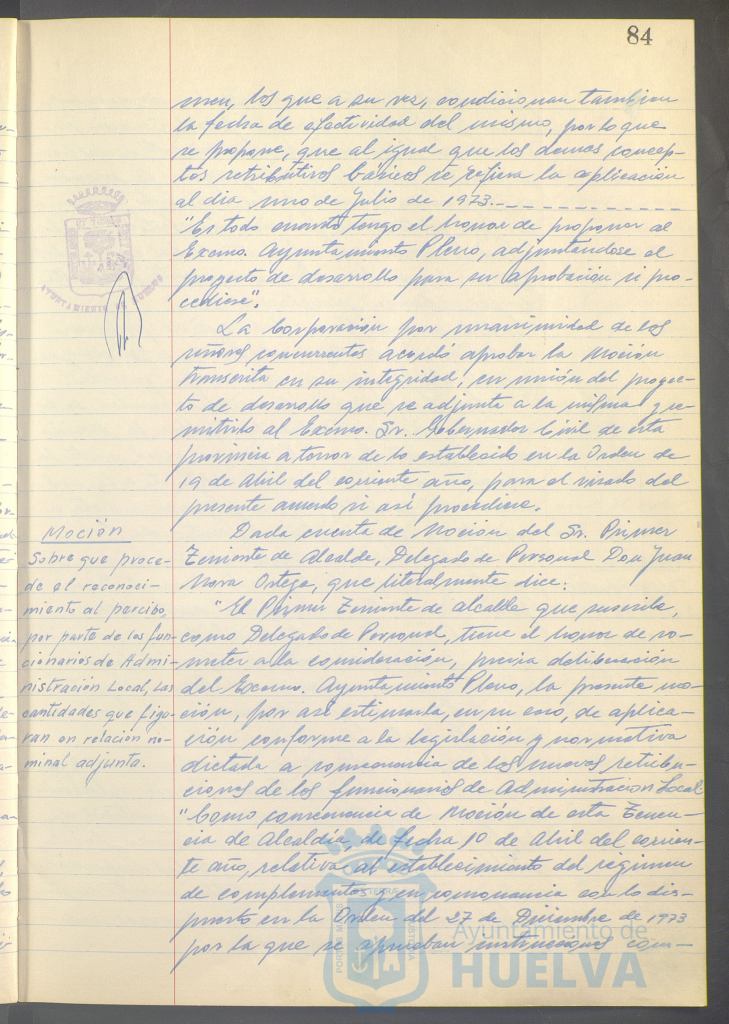 84
men, los que a su vez, condicionan tambien
la fecha de efectividad del mismo, por lo que
se propone, que al igual que los demas concep-
tos retributivos básicos se refiera la aplicación
al dia uno de Julio de 1973.
"Es todo cuanto tengo el honor de proponer al
Excmo. Ayuntamiento Pleno, adjuntandose el
proyecto de desarrollo para su aprobación si pro-
cediese".
AYUNTAMIENTO DE HUELVA
La Corporación por unanimidad de los
señores concurrentes acordó aprobar la Moción
transcrita en su integridad, en unión del proyec-
to de desarrollo que se adjunta a la misma y re-
mitirlo al Excmo. Sr. Gobernador Civil de esta
provincia a tenor de lo establecido en la Orden de
19 de Abril del corriente año, para el visado del
presente acuerdo si así procediese.
Moción
Sobre que proce-
de el reconoci-
miento al percibo,
por parte de los fun-
cionarios de Admi-
nistración Local, las
cantidades que figu-
ran en relación no-
minal adjunta.
Dada cuenta de Moción del Sr. Primer
Teniente de Alcalde, Delegado de Personal Don Juan
Mora Ortega, que literalmente dice:
"El Primer Teniente de Alcalde que suscribe,
como Delegado de Personal, tiene el honor de so-
meter a la consideración, previa deliberación
del Excmo. Ayuntamiento Pleno, la presente mo-
ción, por así estimarla, en su caso, de aplica-
ción conforme a la legislación y normativa
dictada a consecuencia de las nuevas retribu-
ciones de los funcionarios de Administracion Local:
"Como consecuencia de Moción de esta Tenen-
cia de Alcaldía de fecha 10 de Abril del corrien-
te año, relativa al establecimiento del régimen
de complementos y en consonancia con lo dis-
puesto en la Orden del 27 de Diciembre de 1973
por la que se aprueban instrucciones com-
Ayuntamiento de
HUELVA